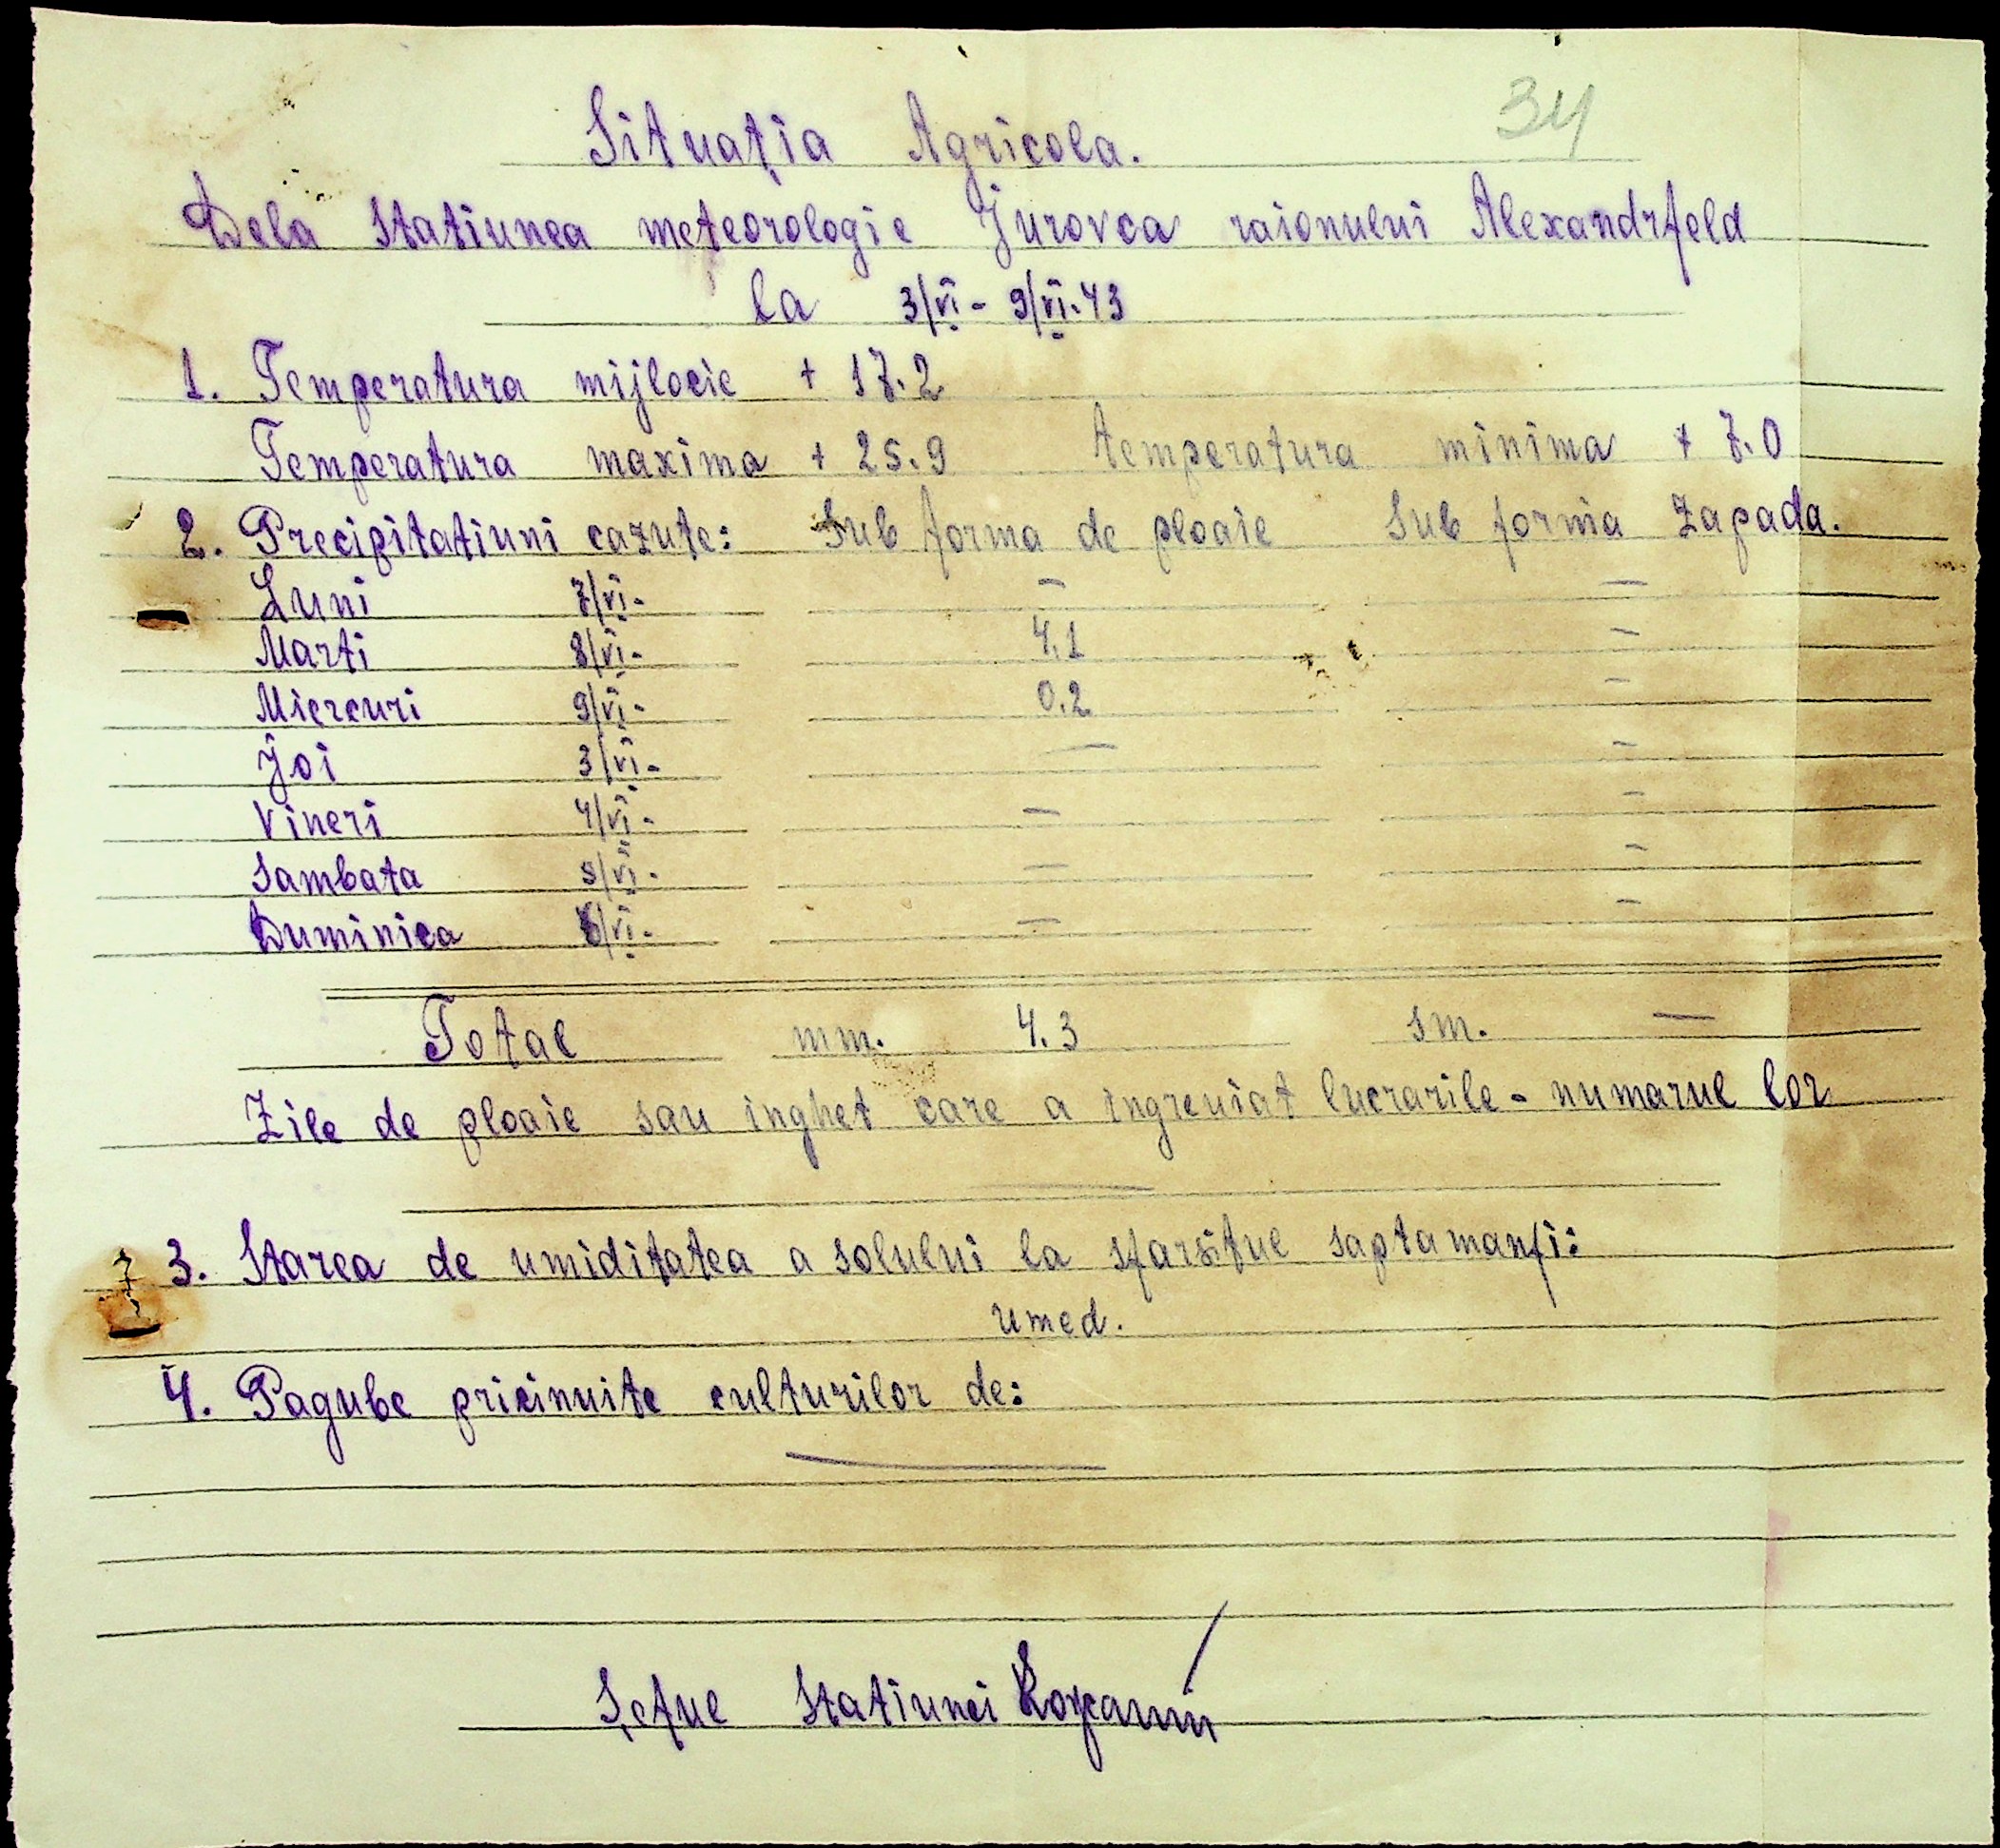 34
Situația Agricola.
Dela Statiunea meteorologie Jurovca raionului Alexandrfeld
la 3/VI - 9/VI.43
1. Temperatura mijlocie + 17.2
Temperatura maxima + 25.9 temperatura minima + 7.0
2. Precipitatiuni cazute: Sub forma de ploaie Sub forma Zapada.
Luni 7/VI. — —
Marti 8/VI. 4.1 —
Miercuri 9/VI. 0.2 —
Joi 3/VI. — —
Vineri 4/VI. — —
Sambata 5/VI. — —
Duminica 6/VI. — —
Total mm. 4.3 sm. —
Zile de ploaie sau inghet care a ingreuiat lucrarile - numarul lor
—
3. Starea de umiditatea a solului la sfarsitul saptamanii:
umed.
4. Pagube pricinuite culturilor de:
—
Șeful Statiunei